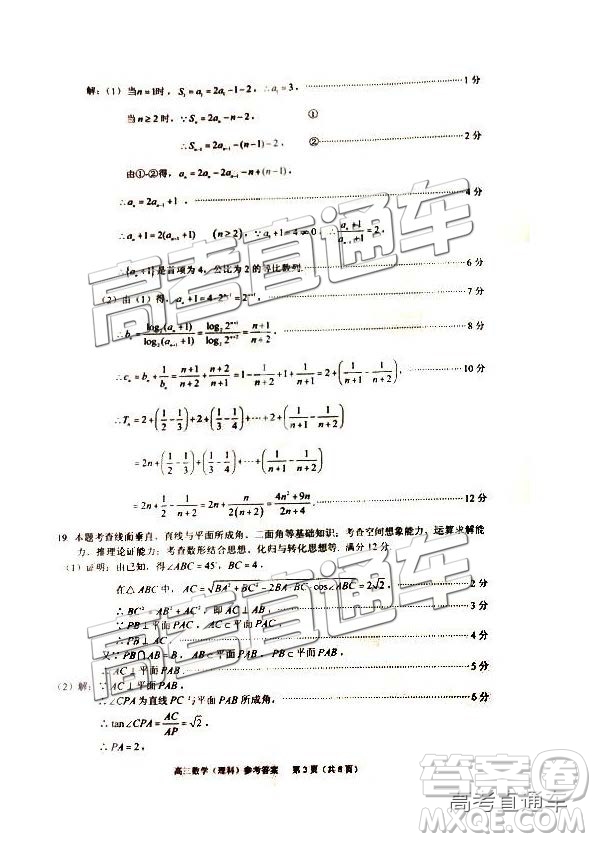 解:(1)当n=1时,S₁=a₁=2a₁-1-2,∴a₁=3,…………1分
当n≥2时,∵Sₙ=2aₙ-n-2, ①
∴Sₙ₋₁=2aₙ₋₁-(n-1)-2, ②…………2分
由①-②得,aₙ=2aₙ-2aₙ₋₁-n+(n-1),
∴aₙ=2aₙ₋₁+1,…………4分
∴aₙ+1=2(aₙ₋₁+1) (n≥2),∵a₁+1=4≠0,∴(aₙ+1)/(aₙ₋₁+1)=2,
∴{aₙ+1}是首项为4,公比为2的等比数列.…………6分
(2)由(1)得,aₙ+1=4·2ⁿ⁻¹=2ⁿ⁺¹,
∴bₙ=log₂(aₙ+1)/log₂(aₙ₊₁+1)=log₂2ⁿ⁺¹/log₂2ⁿ⁺²=(n+1)/(n+2)…………8分
∴cₙ=bₙ+1/bₙ=(n+1)/(n+2)+(n+2)/(n+1)=1-1/(n+2)+1+1/(n+1)=2+(1/(n+1)-1/(n+2)),…………10分
∴Tₙ=2+(1/2-1/3)+2+(1/3-1/4)+…+2+(1/(n+1)-1/(n+2))
=2n+(1/2-1/3+1/3-1/4+…+1/(n+1)-1/(n+2))
=2n+1/2-1/(n+2)=2n+n/(2(n+2))=(4n²+9n)/(2n+4).…………12分
19.本题考查线面垂直,直线与平面所成角、二面角等基础知识;考查空间想象能力,运算求解能
力,推理论证能力;考查数形结合思想、化归与转化思想等.满分12分.
(1)证明:由已知,得∠ABC=45°,BC=4,
在△ABC中,AC=√(BA²+BC²-2BA·BC·cos∠ABC)=2√2,…………2分
∴BC²=AB²+AC²,即AC⊥AB,…………3分
∵PB⊥平面ABC,
∴PB⊥AC,…………4分
又∵PB∩AB=B,∴AC⊥平面PAB,
∴平面PAB⊥平面PAC.…………5分
(2)解:∵AC⊥平面PAB,
∴∠CPA为直线PC与平面PAB所成角,…………6分
∴tan∠CPA=AC/AP=√2,
∴PA=2,
高三数学(理科)参考答案 第3页(共6页)
高考直通车
高考直通车
高考直通车
高考直通车